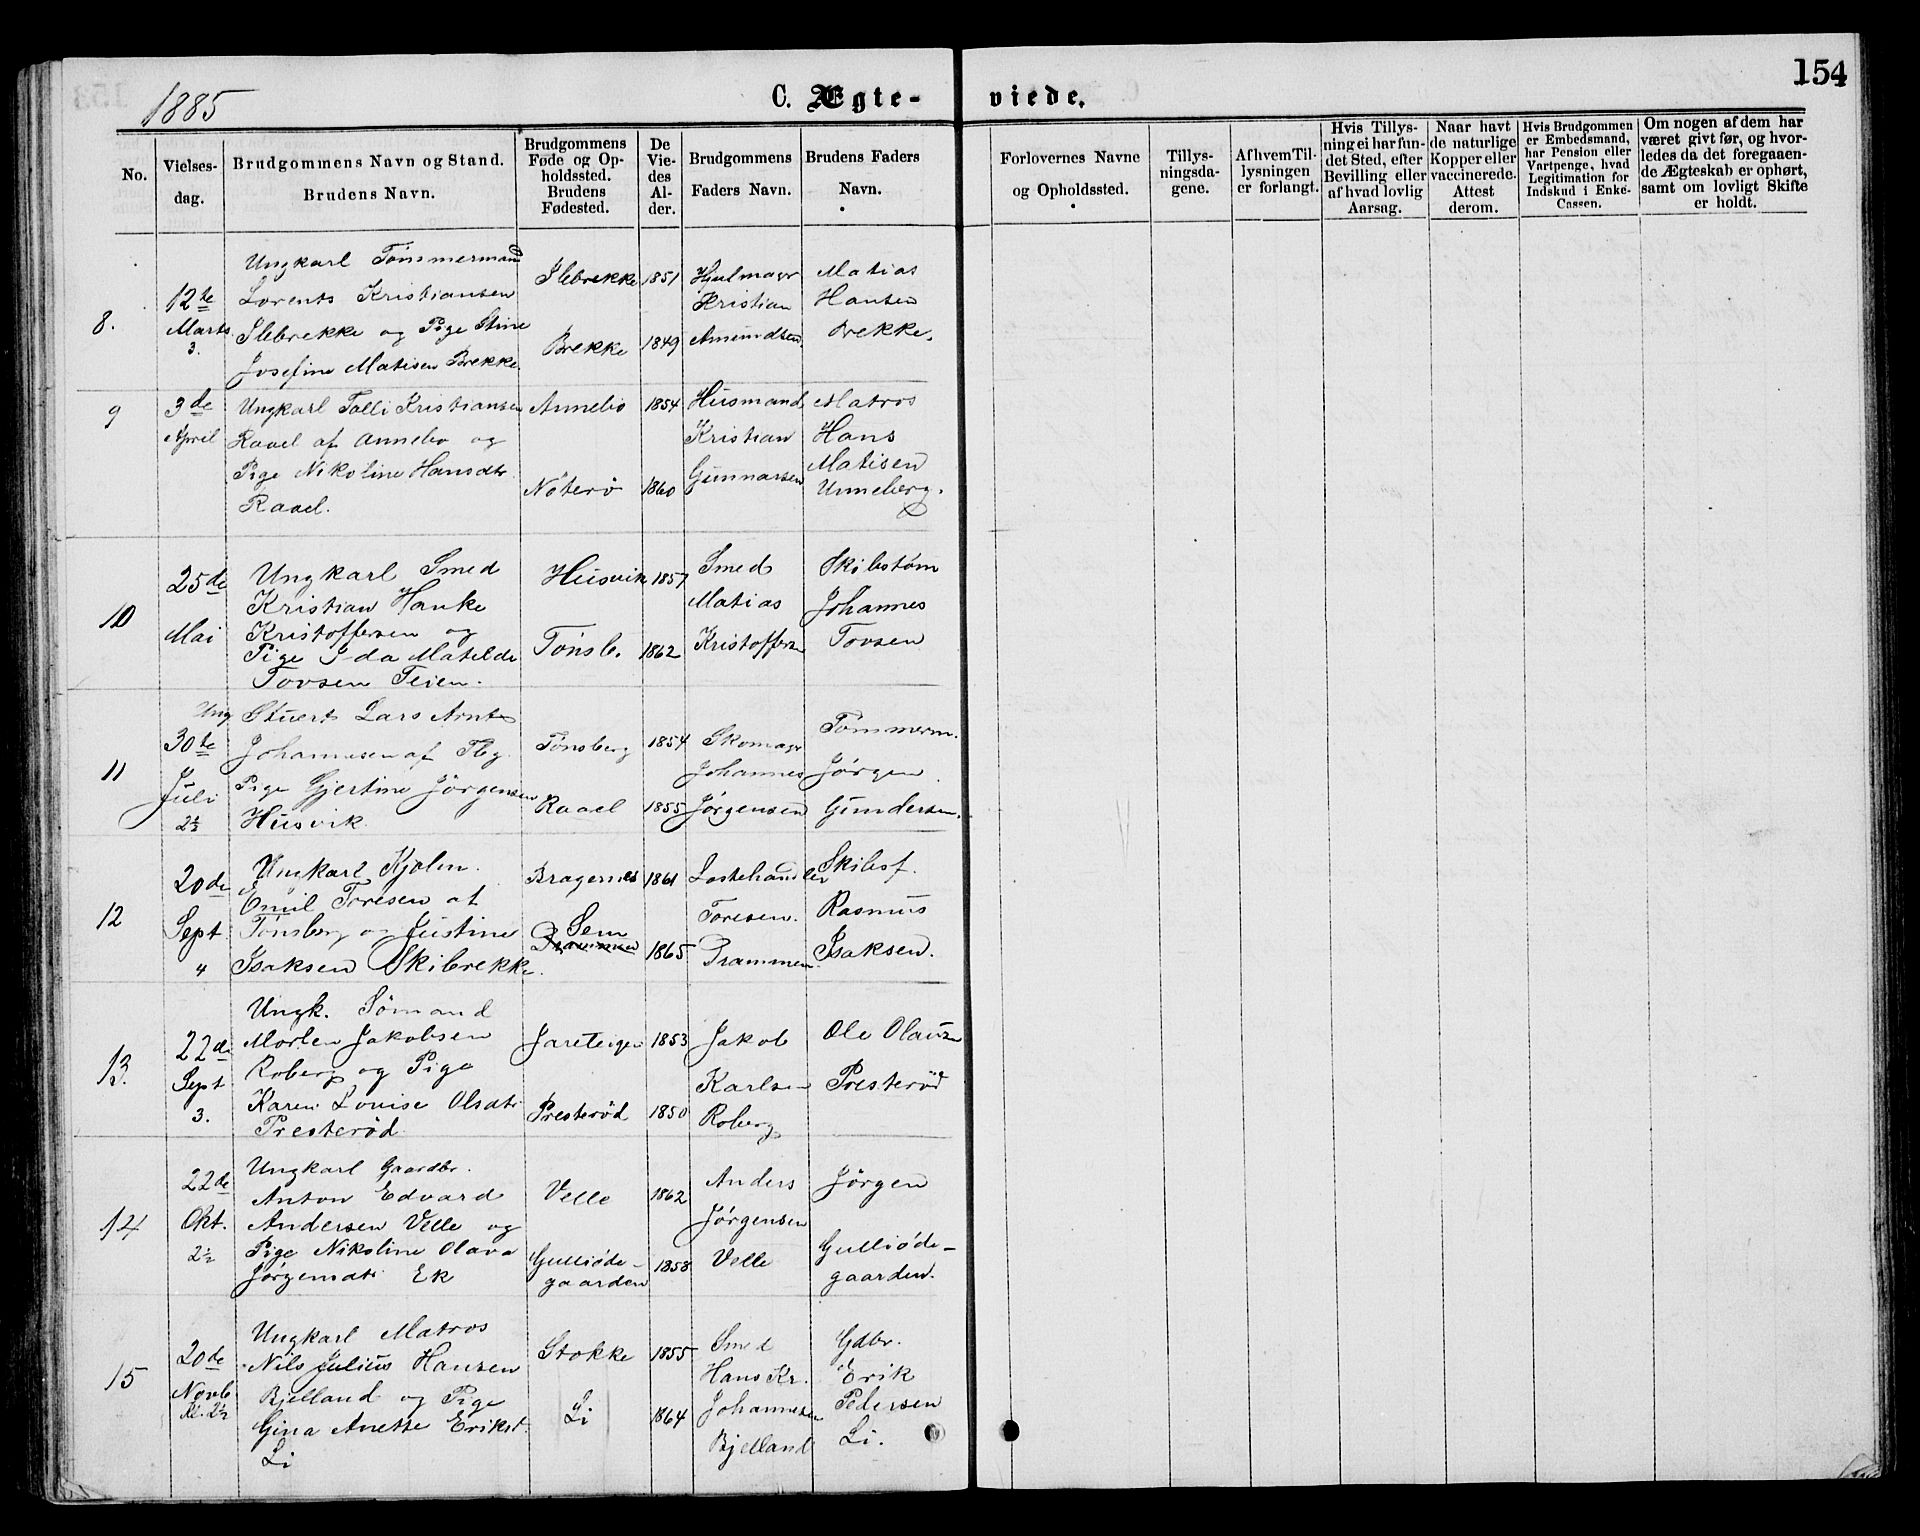 154
1885
C. Ægte-viede.
No.
Vielses-
dag.
Brudgommens Navn og Stand.
Brudens Navn.
Brudgommens
Føde og Op-
holdssted.
Brudens
Fødested.
De
Vie-
des
Al-
der.
Brudgommens
Faders Navn.
Brudens Faders
Navn.
Forlovernes Navne
og Opholdssted.
Tillys-
ningsda-
gene.
Af hvem Til-
lysningen
er forlangt.
Hvis Tillys-
ning ei har fun-
det Sted, efter
Bevilling eller
af hvad lovlig
Aarsag.
Naar havt
de naturlige
Kopper eller
vaccinerede.
Attest
derom.
Hvis Brudgommen
er Embedsmand,
har Pension eller
Vartpenge, hvad
Legitimation for
Indskud i Enke-
Cassen.
Om nogen af dem har
været givt før, og hvor-
ledes da det foregaaen-
de Ægteskab er ophørt,
samt om lovligt Skifte
er holdt.
8.
12te
Marts
3.
Ungkarl Tömmermand
Lorents Kristiansen
Ilebrekke og Pige Stine
Josefine Matisen Brekke
Ilebrekke
Brekke
1851
1849
Hjulmagr
Kristian
Amundsen
Matias
Hansen
Brekke.
9
3de
April
Ungkarl Tolli Kristiansen
Raael af Annebo og
Pige Nikoline Hansdtr
Raael.
Annebo
Nöterö
1854
1860
Husmand
Kristian
Gunnarsen
Matros
Hans
Matisen
Unneberg.
10
25de
Mai
Ungkarl Smed
Kristian Hanke
Kristoffersen og
Pige Ida Matilde
Tovsen Teien.
Husvik
Tönsb.
1857
1862
Smed
Matias
Kristoffersn
Skibstøm
Johannes
Tovsen
11
30te
Juli
2½
Ung Stuert Lars Arnt
Johannesen af Tbg.
Pige Gjertine Jörgensen
Husvik
Tönsberg
Raael
1854
1855
Skomagr
Johannes
Jörgensen
Tömmerm.
Jörgen
Gundersen.
12
20de
Sept
4
Ungkarl Kjøbm.
Emil Toresen af
Tönsberg og Justine
Isaksen Skibrekke.
Bragernes
Sem
1861
1865
Lastehandler
Toresen.
Drammen.
Skibsf.
Rasmus
Isaksen.
13.
22de
Sept
3.
Ungk. Sömand
Morten Jakobsen
Roberg og Pige
Karen Louise Olsdtr
Presteröd
Jareteigen
Presteröd
1853
1850
Jakob
Karlsen
Roberg
Ole Olausen
Presteröd
14
22de
Okt.
2½
Ungkarl Gaardbr.
Anton Edvard
Andersen Velle og
Pige Nikoline Olava
Jörgensdtr Ek
Velle
Gulliöde-
gaarden
1862
1858
Anders
Jörgensen
Velle
Jörgen
Gulliöde-
gaarden.
15
20de
Novb
Kl. 2½
Ungkarl Matros
Nils Julius Hansen
Bjelland og Pige
Gina Anette Eriksd.
Li
Stokke
Li
1855
1864
Smed
Hans Kr.
Johannesen
Bjelland
Gdbr.
Erik
Pedersen
Li.